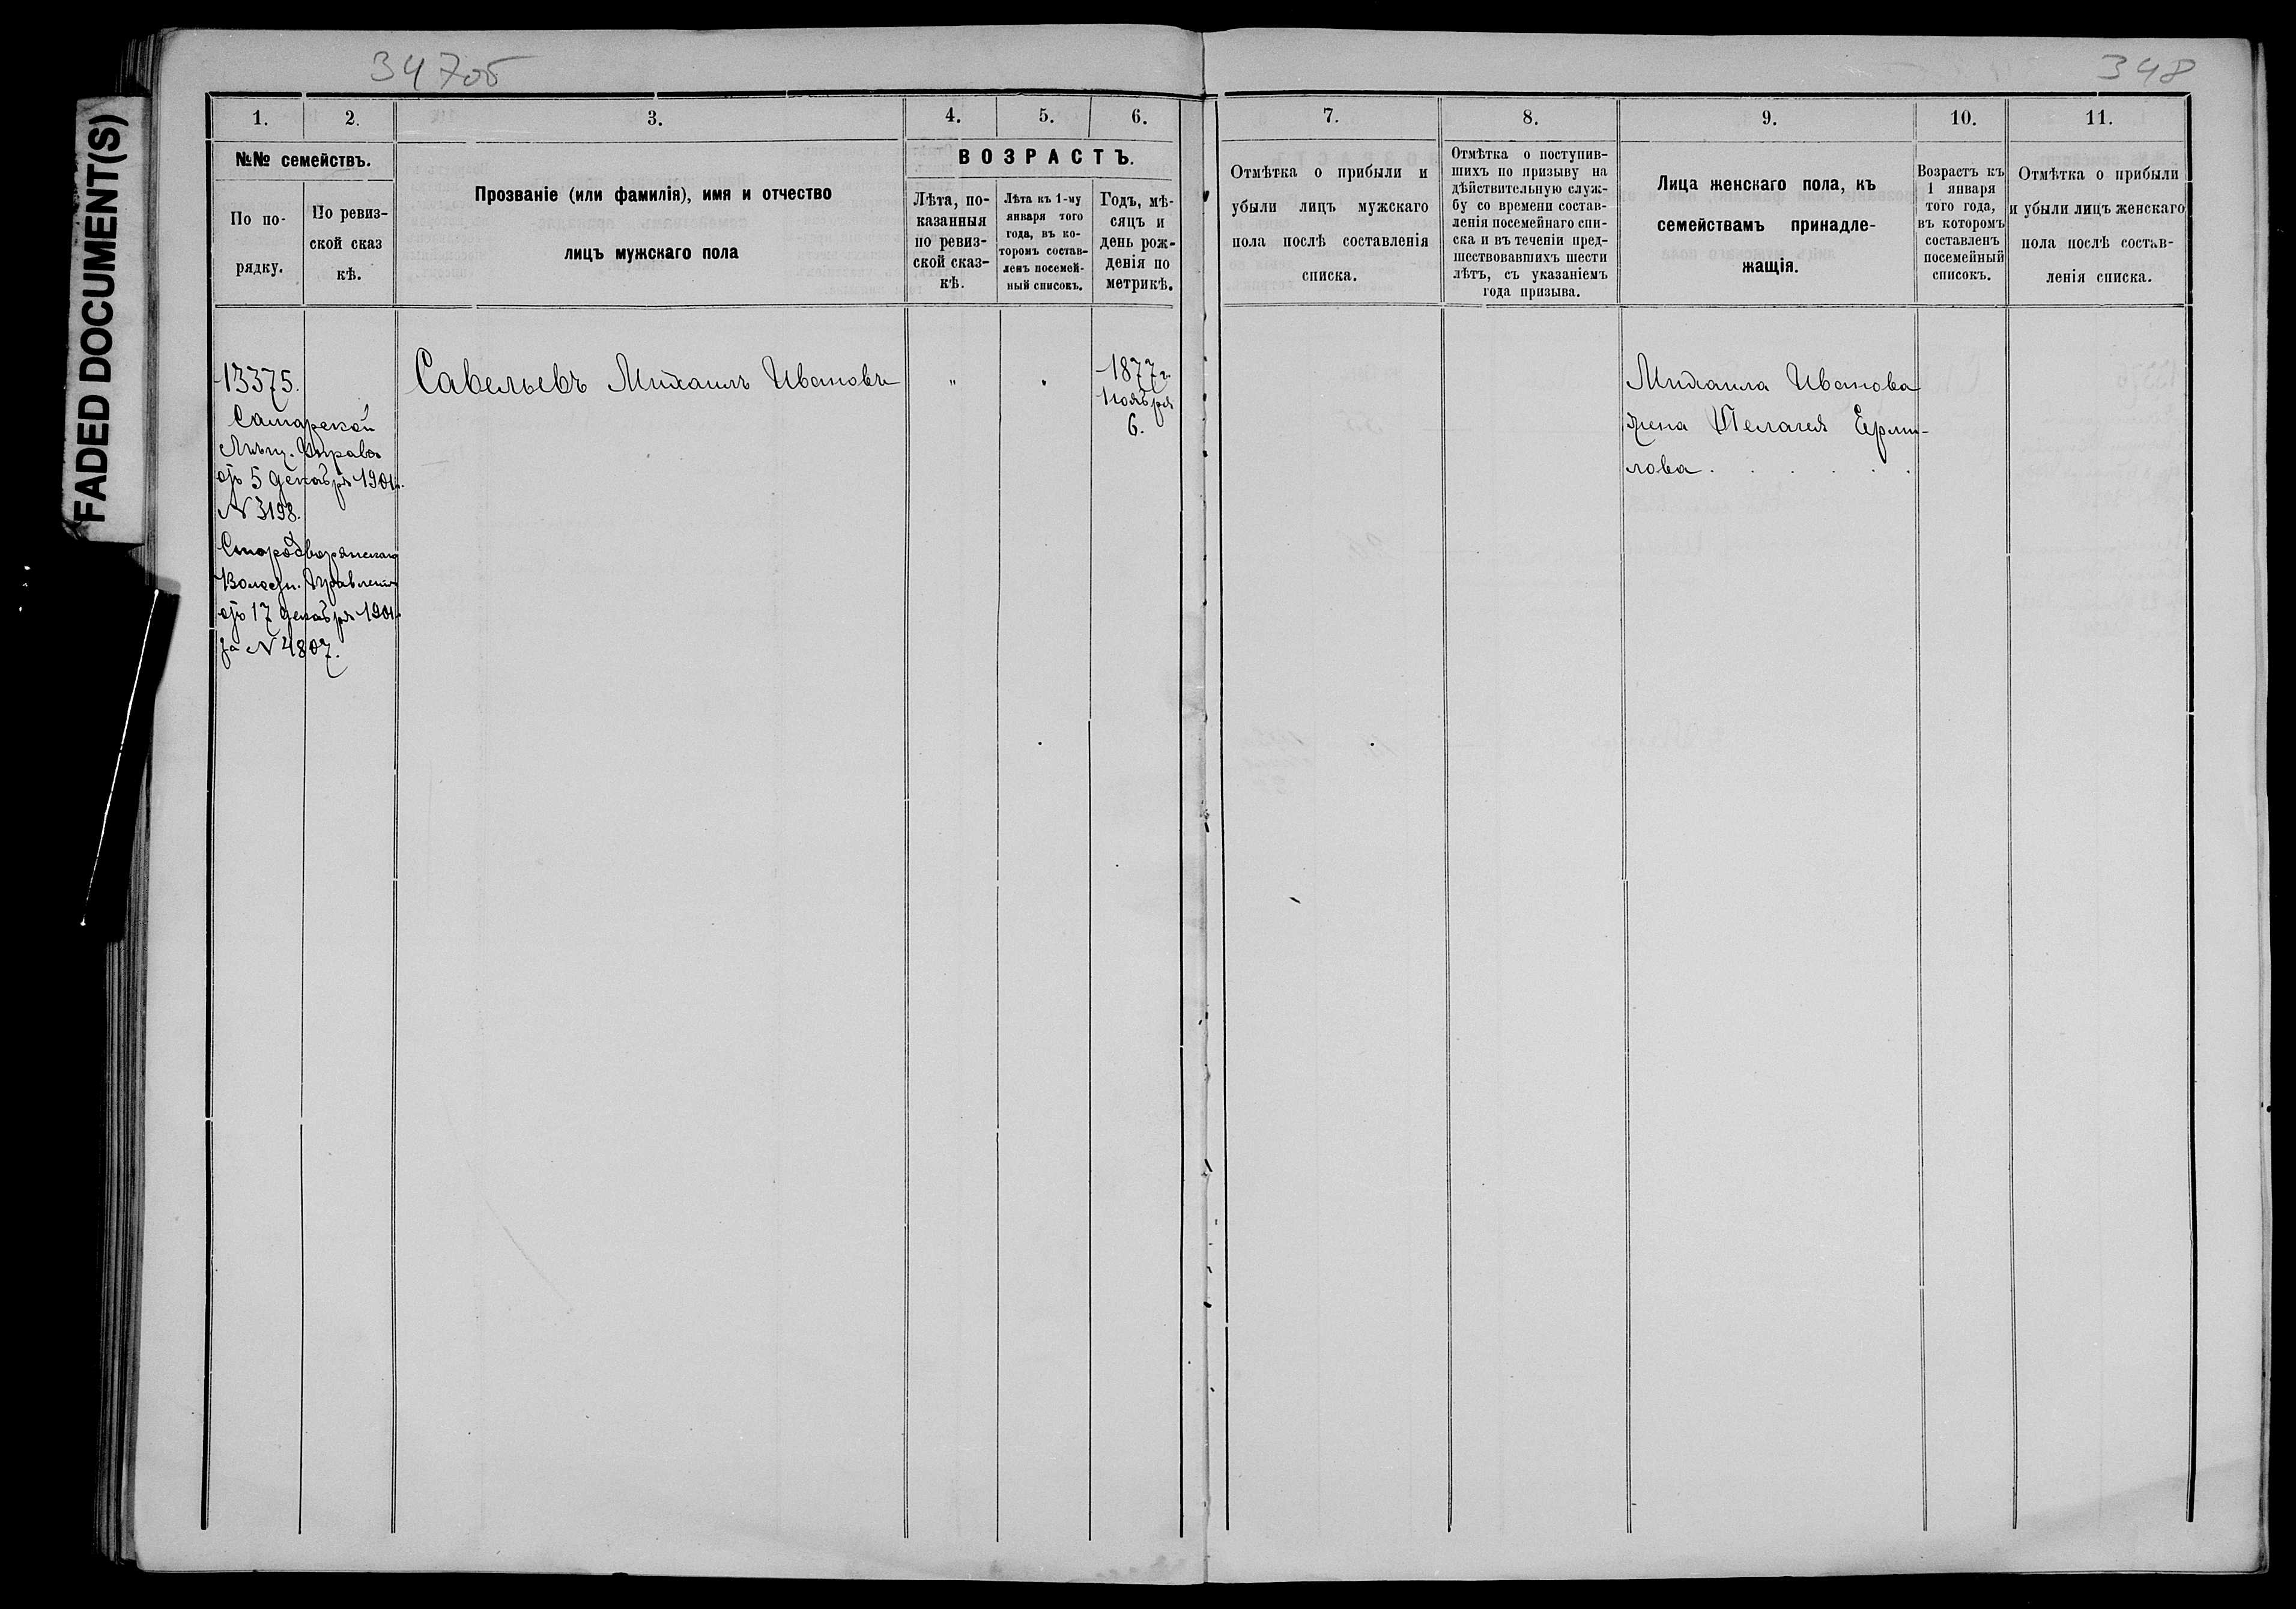 347об
348
FADED DOCUMENT(S)
1.
2.
3.
4.
5.
6.
№№ семействъ.
По по-
рядку.
По ревиз-
ской сказ
кѣ.
Прозваніе (или фамилія), имя и отчество
лицъ мужскаго пола
ВОЗРАСТЪ.
Лѣта, по-
казанныя
по ревиз-
ской сказ-
кѣ.
Лѣта къ 1-му
января того
года, въ ко-
торомъ состав-
ленъ посемей-
ный списокъ.
Годъ, мѣ-
сяцъ и
день рож-
денія по
метрикѣ.
7.
8.
9.
10.
11.
Отмѣтка о прибыли и
убыли лицъ мужскаго
пола послѣ составленія
списка.
Отмѣтка о поступив-
шихъ по призыву на
дѣйствительную служ-
бу со времени состав-
ленія посемейнаго спи-
ска и въ теченіи пред-
шествовавшихъ шести
лѣтъ, съ указаніемъ
года призыва.
Лица женскаго пола, къ
семействамъ принадле-
жащія.
Возрастъ къ
1 января
того года,
въ которомъ
составленъ
посемейный
списокъ.
Отмѣтка о прибыли
и убыли лицъ женскаго
пола послѣ состав-
ленія списка.
13375.
Самарской
Мѣщ. Управы
отъ 5 декабря 1901г.
№ 3198.
Стародворянскаго
Волостн. Правленія
отъ 17 декабря 1901г.
за № 4807.
Савельевъ Михаилъ Ивановъ
"
1877г.
Ноября
6.
Михаила Иванова
жена Пелагея Ерми-
лова . . . . . .